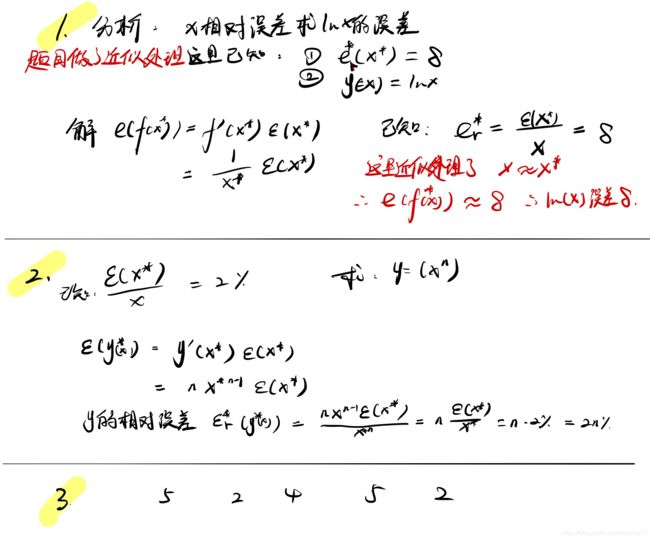 1. 分析: x相对误差求lnx的误差
题目做了近似处理 这里已知: ① e*r(x*) = δ
② y(x) = lnx
解 e(f(x*)) = f'(x*) ε(x*)
= 1/x* ε(x*)
已知: e*r = ε(x*)/x = δ
这里近似处理了 x≈x*
∴ e(f(x*)) ≈ δ ∴ ln(x)误差δ.
2. 已知: ε(x*)/x = 2% 求: y=(xⁿ)
ε(y(x*)) = y'(x*) ε(x*)
= n x*ⁿ⁻¹ ε(x*)
y的相对误差 ε*r(y(x*)) = nxⁿ⁻¹ε(x*)/x*ⁿ = n ε(x*)/x* = n·2% = 2n%
3. 5 2 4 5 2